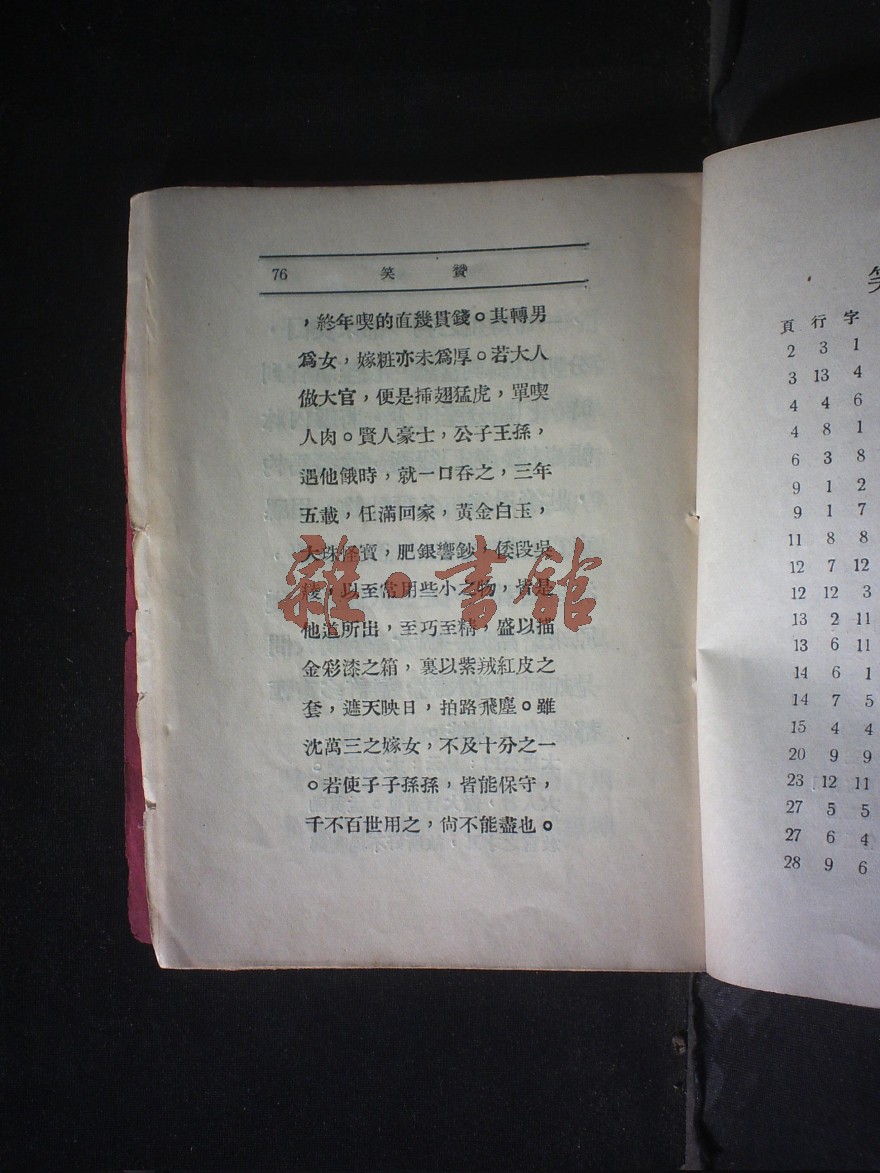 76 笑贊
，終年喫的直幾貫錢。其轉男
爲女，嫁粧亦未爲厚。若大人
做大官，便是揷翅猛虎，單喫
人肉。賢人豪士，公子王孫，
遇他餓時，就一口吞之，三年
五載，任滿回家，黃金白玉，
大珠怪寶，肥銀響鈔，倭段吳
綾，以至常用些小之物，皆是
他道所出，至巧至精，盛以描
金彩漆之箱，裏以紫羢紅皮之
套，遮天映日，拍路飛塵。雖
沈萬三之嫁女，不及十分之一
。若使子子孫孫，皆能保守，
千不百世用之，尙不能盡也。
雜·書館
笑
頁 行 字
2 3 1
3 13 4
4 4 6
4 8 1
6 3 8
9 1 2
9 1 7
11 8 8
12 7 12
12 12 3
13 2 11
13 6 11
14 6 1
14 7 5
15 4 4
20 9 9
23 12 11
27 5 5
27 6 4
28 9 6